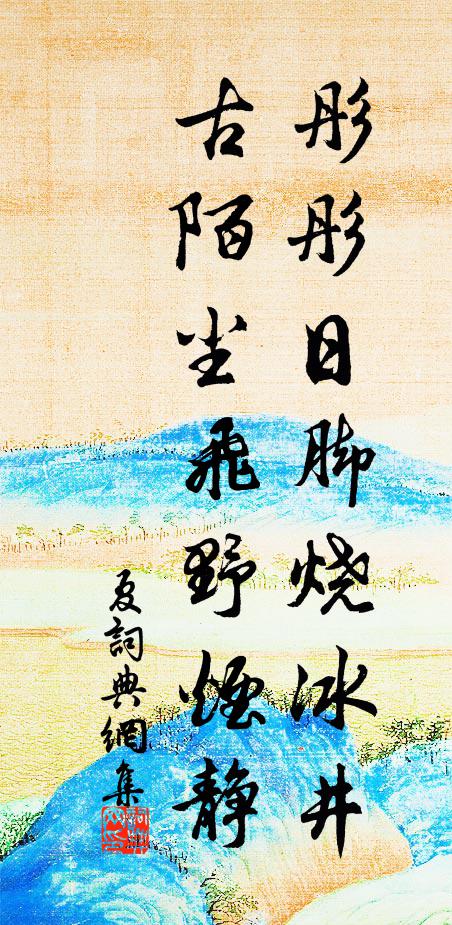 彤彤日脚烧冰井
古陌尘飛野煙静
夏詞典網集